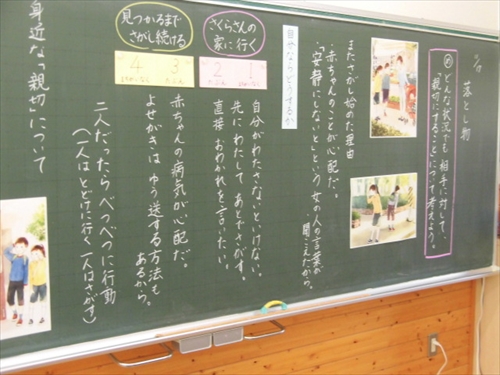 落とし物
め どんな状況でも相手に対して、
親切にすることについて考えよう。
またさがし始めた理由
・赤ちゃんのことが心配だ。
・「安静にしないと」という女の人の言葉が
聞こえたから。
自分ならどうするか
さくらさんの
家に行く
1
2
自分がわたさないといけない。
先にわたして、あとでさがす。
直接おわかれを言いたい。
見つかるまで
さがし続ける
3
4
赤ちゃんの病気が心配だ。
よせがきは、ゆう送する方法も
あるから。
二人だったらべつべつに行動
(一人はとどけに行く 一人はさがす)
身近な「親切」について